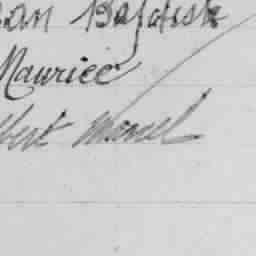 an Baptiste
Maurice
bert Marcel